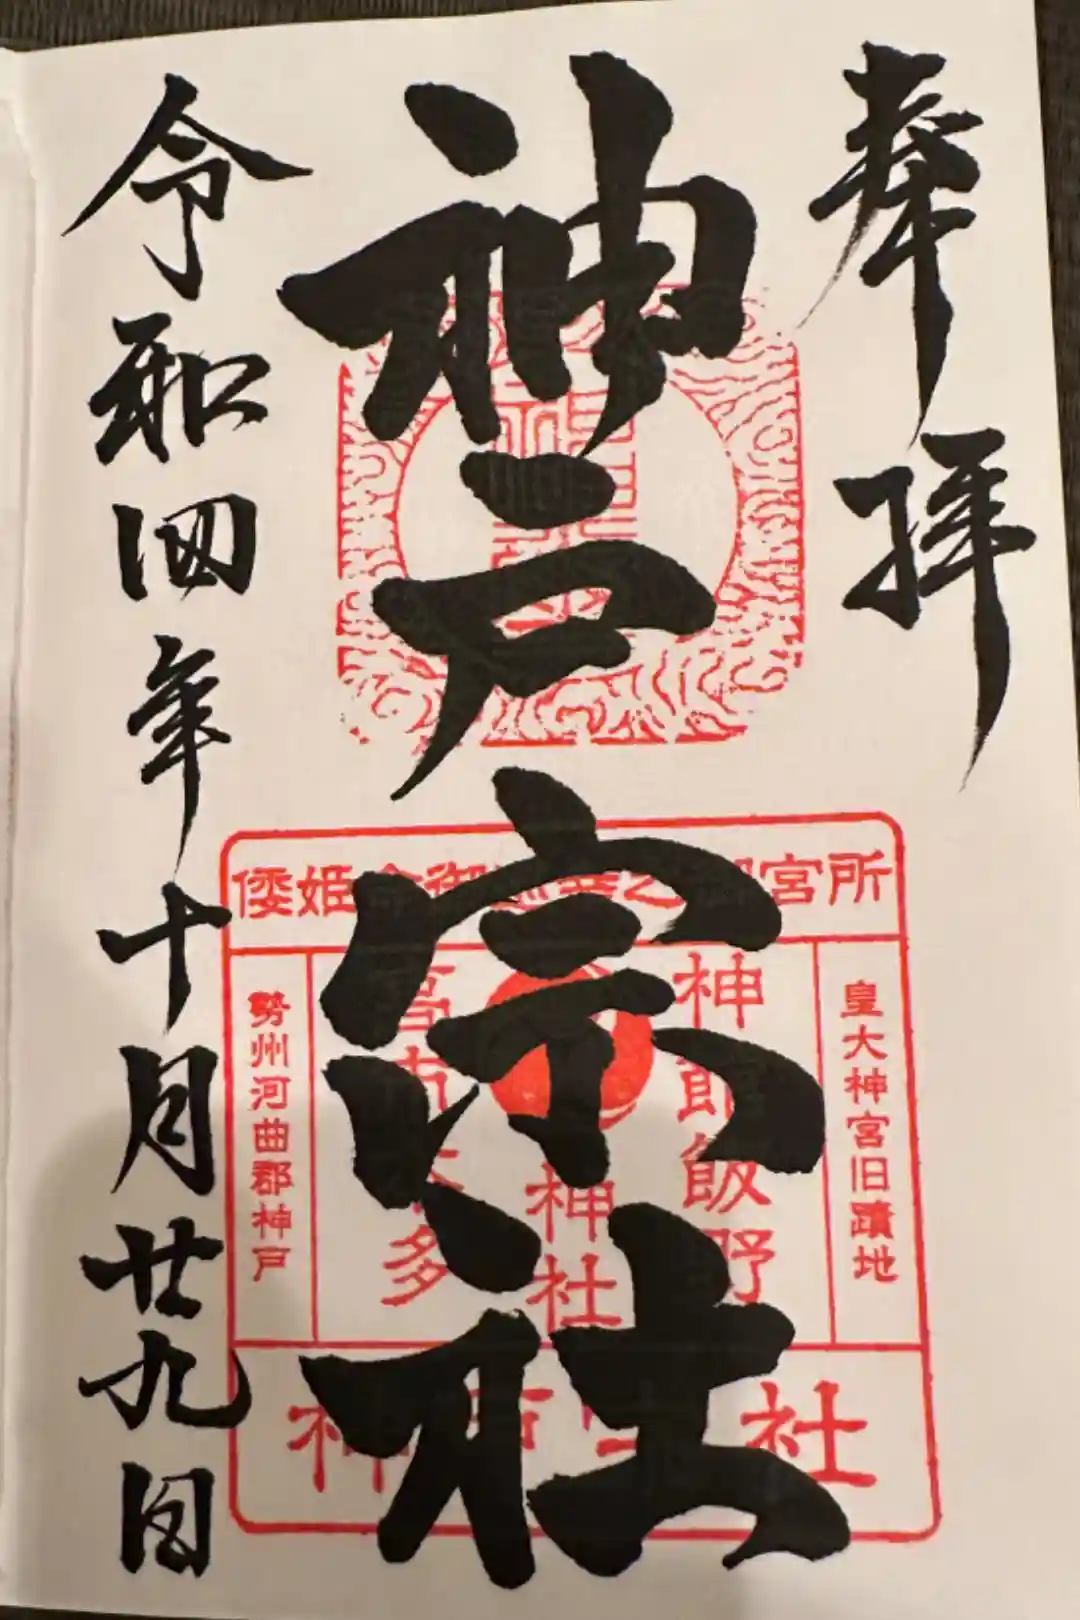 奉拝
神戸宗社
令和四年十月廿九日
倭姫命御 幸之御宮所
皇大神宮旧蹟地
神館飯野
神社
多
勢州河曲郡神戸
神戸宗社